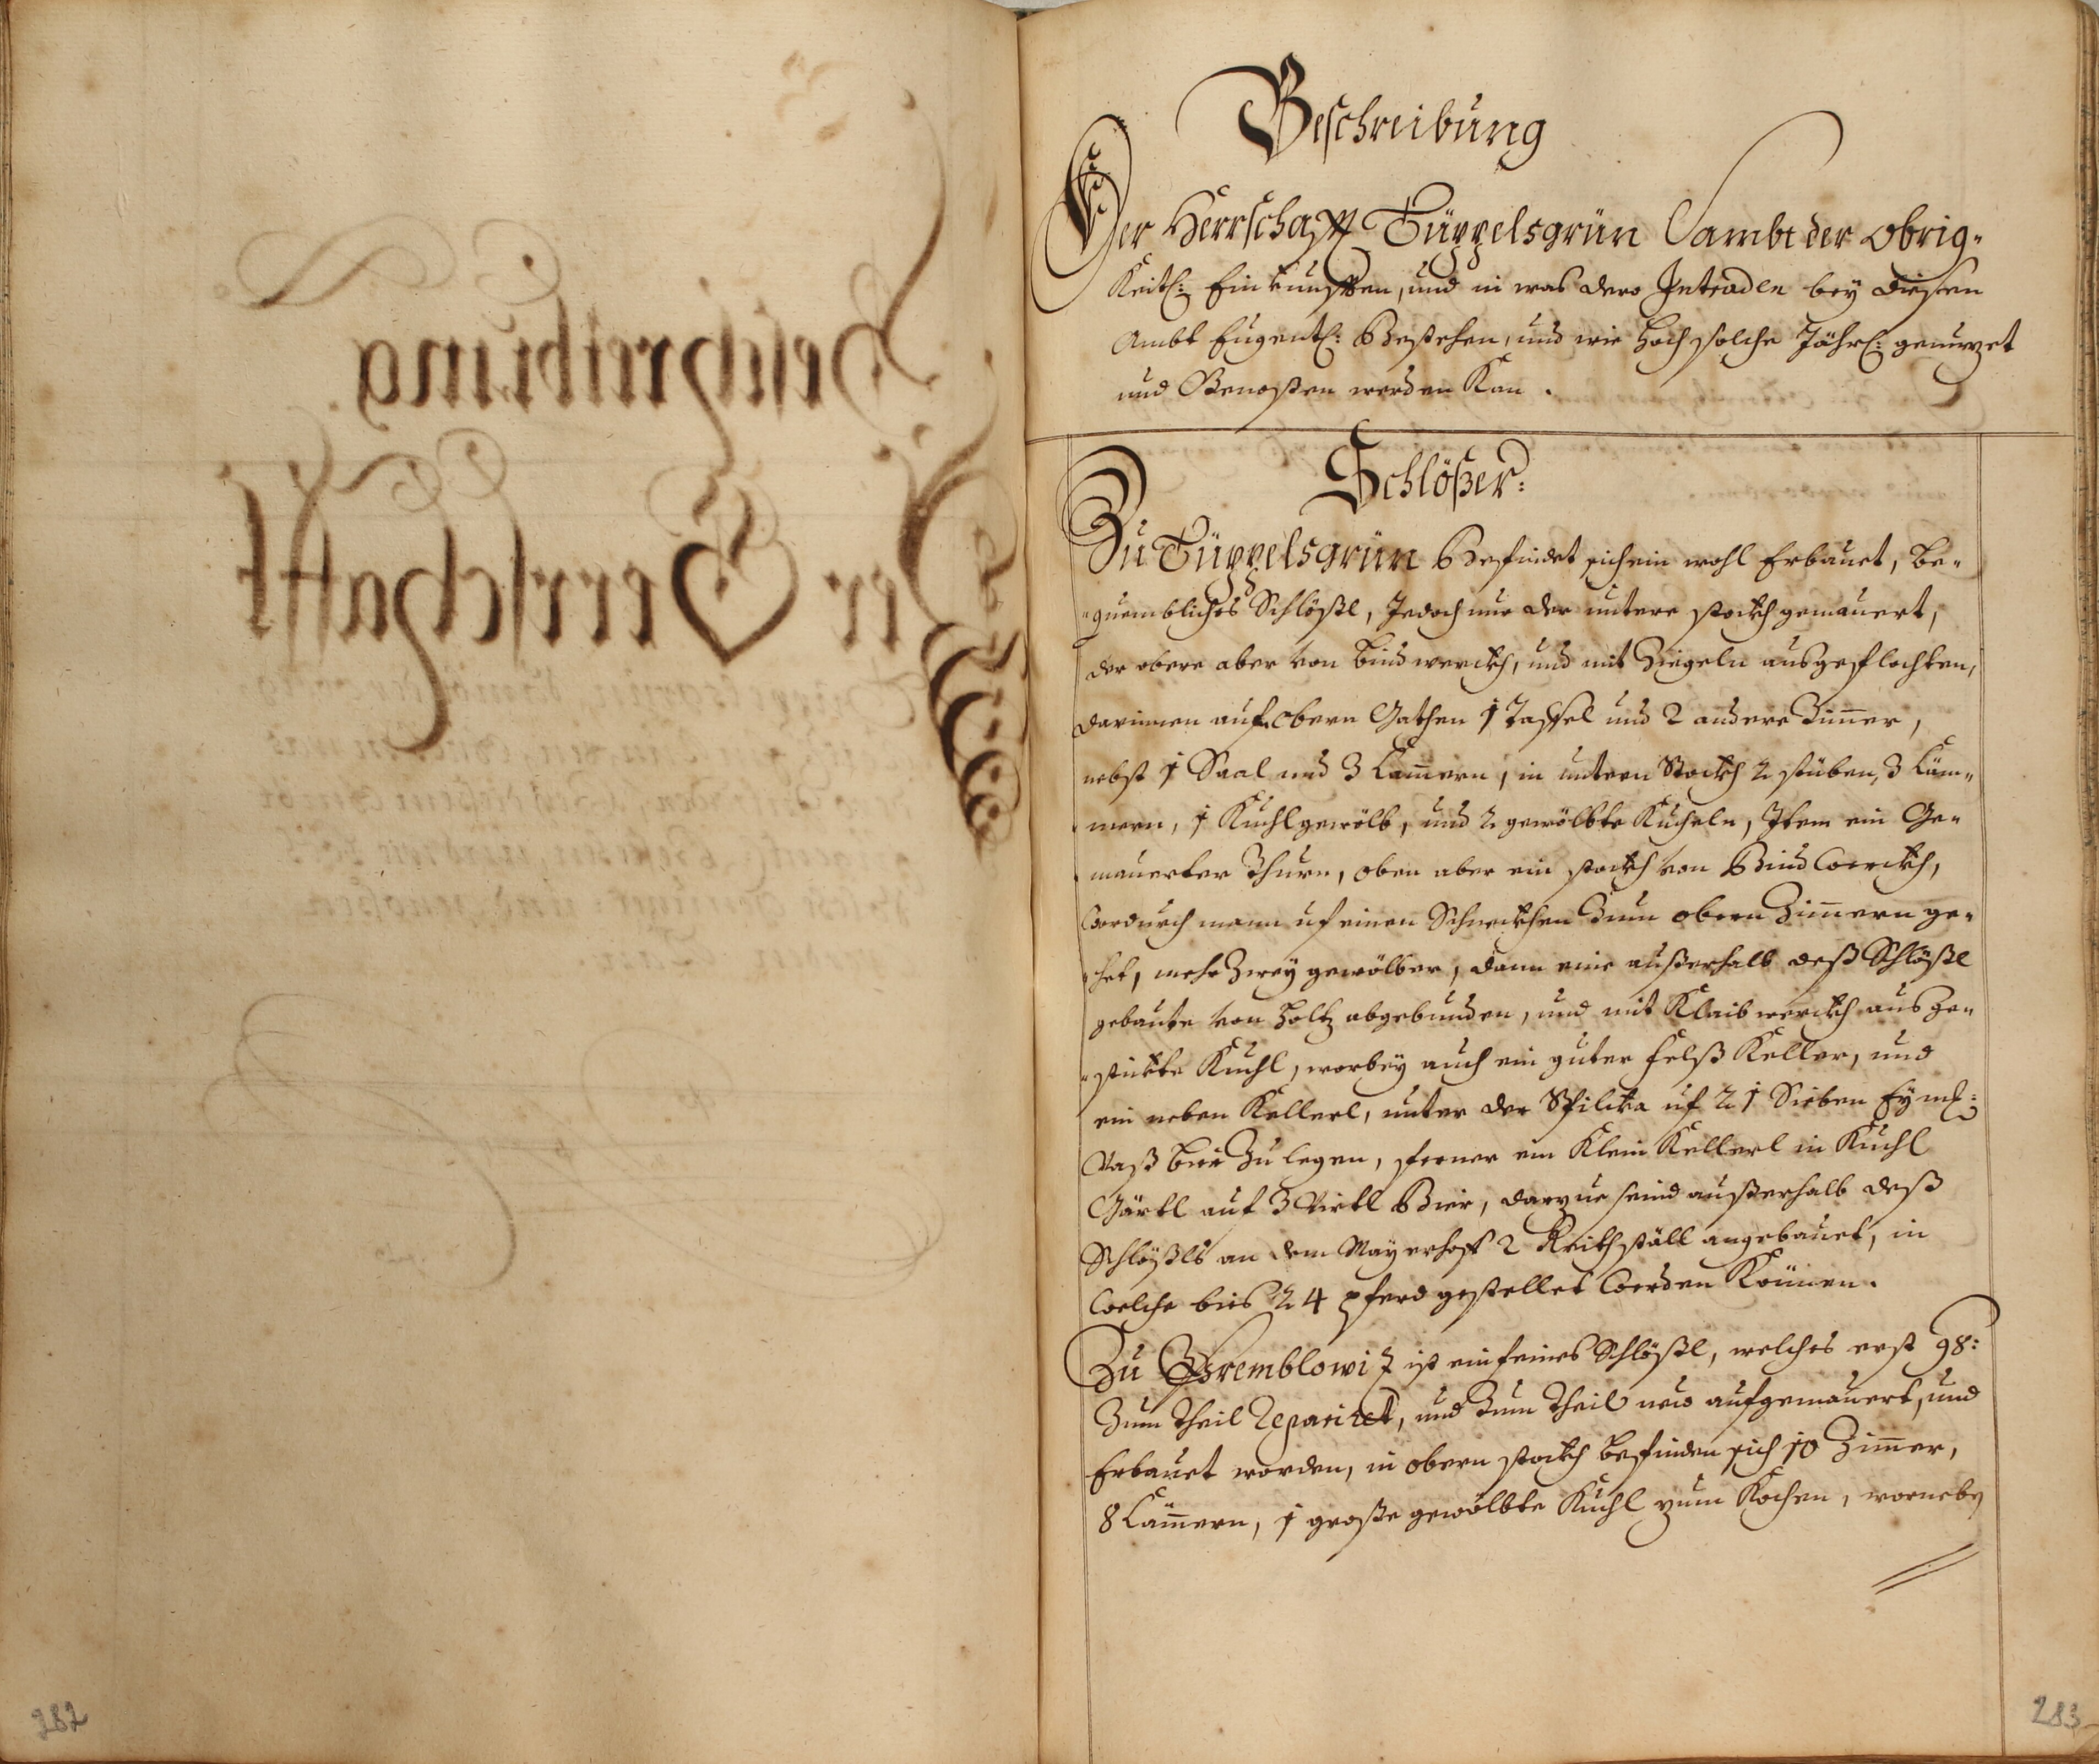 Beschreibung
Der Herrschafft Tüppelsgrün Sambt der Obrig-
Keitl: Einkunfften, und in was dero Intraden bey diesen
Ambt Eugentl: Bestehen, und wie hoch solche Jährl: genuzet
und Genoßen werden Kan.
Schlößer:
Zu Tüppelsgrün Befindet sich ein wohl Erbauet, be-
quembliches Schlößl, Jedoch nur der untere stockh gemauert,
der obere aber von bindwerckh, und mit Ziegeln ausgeflochten,
darinnen auf obern Gathen 1 Taffel und 2 andere Zimer,
nebst 1 Saal und 3 Camern, in untern Stockh 2 stüben, 3 Cam-
mern, 1 Kuchlgewölb, und 2 gewölbte Kucheln, Item ein Ge-
mauerter Thurn, oben aber ein stockh von Bindwerckh,
wordurch mann uf einen Schneckhen Zum obern Zimern ge-
het, mehr Zwey gewölber, dann eine außerhalb deß Schlößl
gebaute von holtz abgebunden, und mit Klaibwerckh ausge-
stickte Kuchl, worbey auch ein guter felß Keller, und
ein neben Kellerl, unter der Spilcka uf 21 Sieben Eyml:
Vaß bier Zu legen, ferner ein Klein Kellerl in Kuchl
Gärtl auf 3 Virtl Bier, darzue seind außerhalb deß
Schlößls an dem Mayerhoff 2 Reithställ angebauet, in
welche bies 24 pferd gestellet werden Können.
Zu Premblowiz ist ein feines Schlößl, welches erst 98:
Zum theil Repariret, und Zum theil neu aufgemauert, und
Erbauet worden, in obern stockh befinden sich 10 Zimer,
8 Camern, 1 große gewölbte Kuchl zum Kochen, worneby
282
283